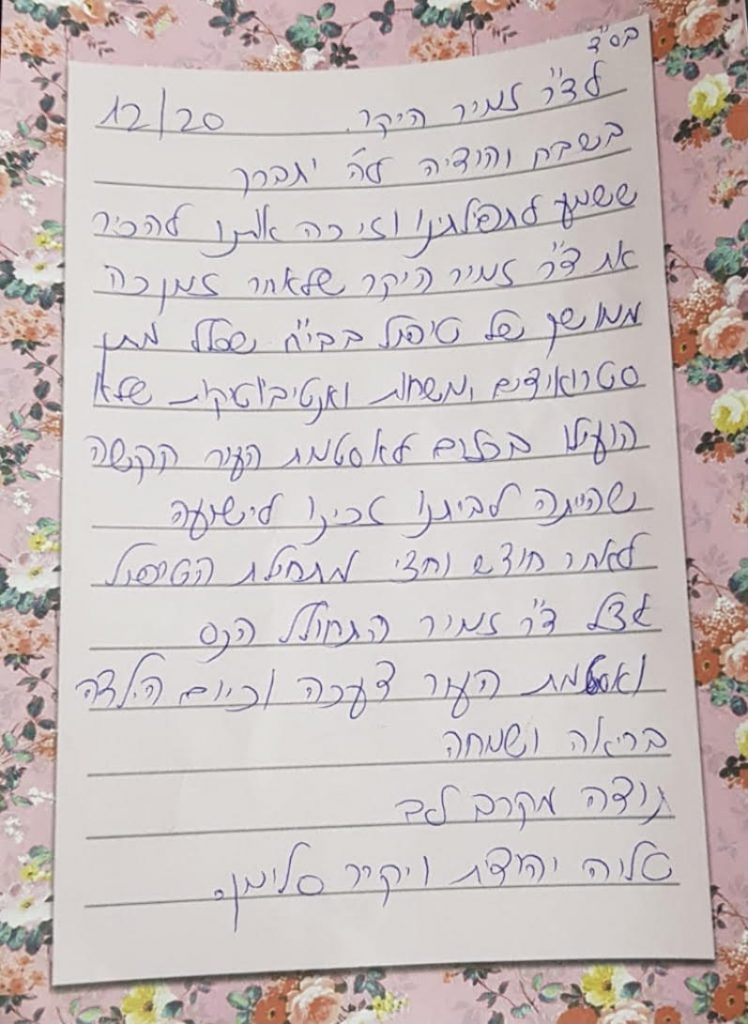 בס״ד
לד״ר זמיר היקר. 12/20
בשבח והודיה לה׳ יתברך
ששמע לתפילתינו וזיכה אותנו להכיר
את ד״ר זמיר היקר שלאחר זמן כה
ממושך של טיפול בבי״ח שכלל מתן
סטרואידים, משחות ואנטיביוטיקות שלא
הועילו בכלום לאסטמת העור הקשה
שהייתה לביתנו זכינו לישועה
לאחר חודש וחצי מתחילת הטיפול
אצל ד״ר זמיר התחולל הנס
ואסטמת העור דעכה וכיום הילדה
בריאה ושמחה
תודה מקרב לב
טליה יהודית ויקיר סלימן.